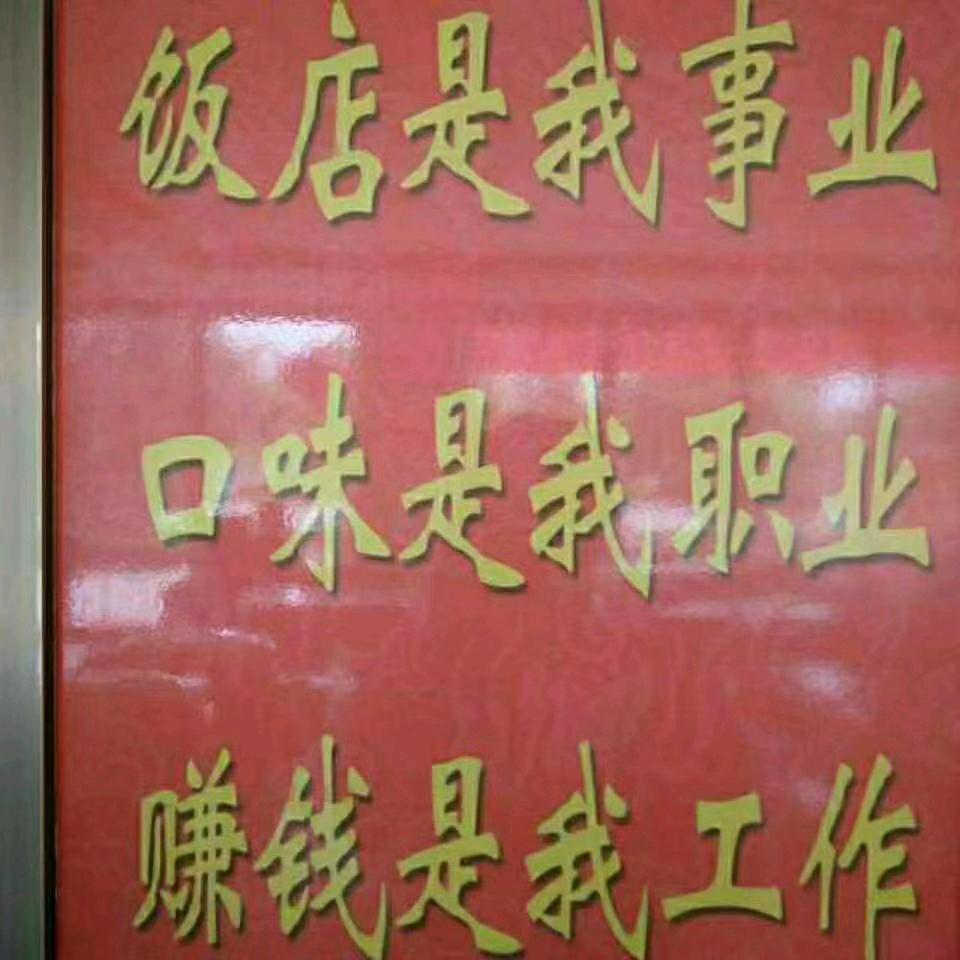 饭店是我事业
口味是我职业
赚钱是我工作